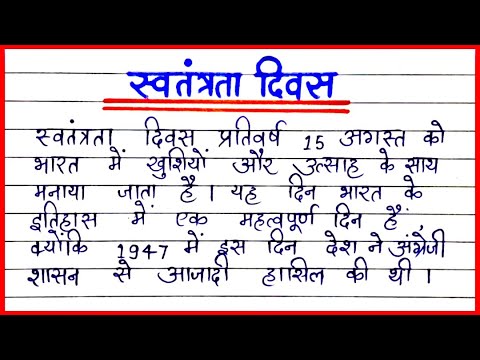 स्वतंत्रता दिवस
स्वतंत्रता दिवस प्रतिवर्ष 15 अगस्त को
भारत में खुशियों और उत्साह के साथ
मनाया जाता है। यह दिन भारत के
इतिहास में एक महत्वपूर्ण दिन है,
क्योंकि 1947 में इस दिन देश ने अंग्रेजी
शासन से आजादी हासिल की थी।